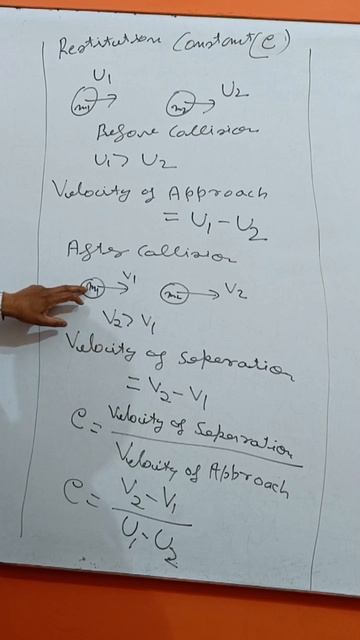 Restitution Constant (e)
U1 U2
m1 m2
Before Collision
U1 > U2
Velocity of Approach
= U1 - U2
After Collision
m1 V1 m2 V2
V2 > V1
Velocity of Seperation
= V2 - V1
e = Velocity of Seperation
Velocity of Approach
e = V2 - V1
U1 - U2